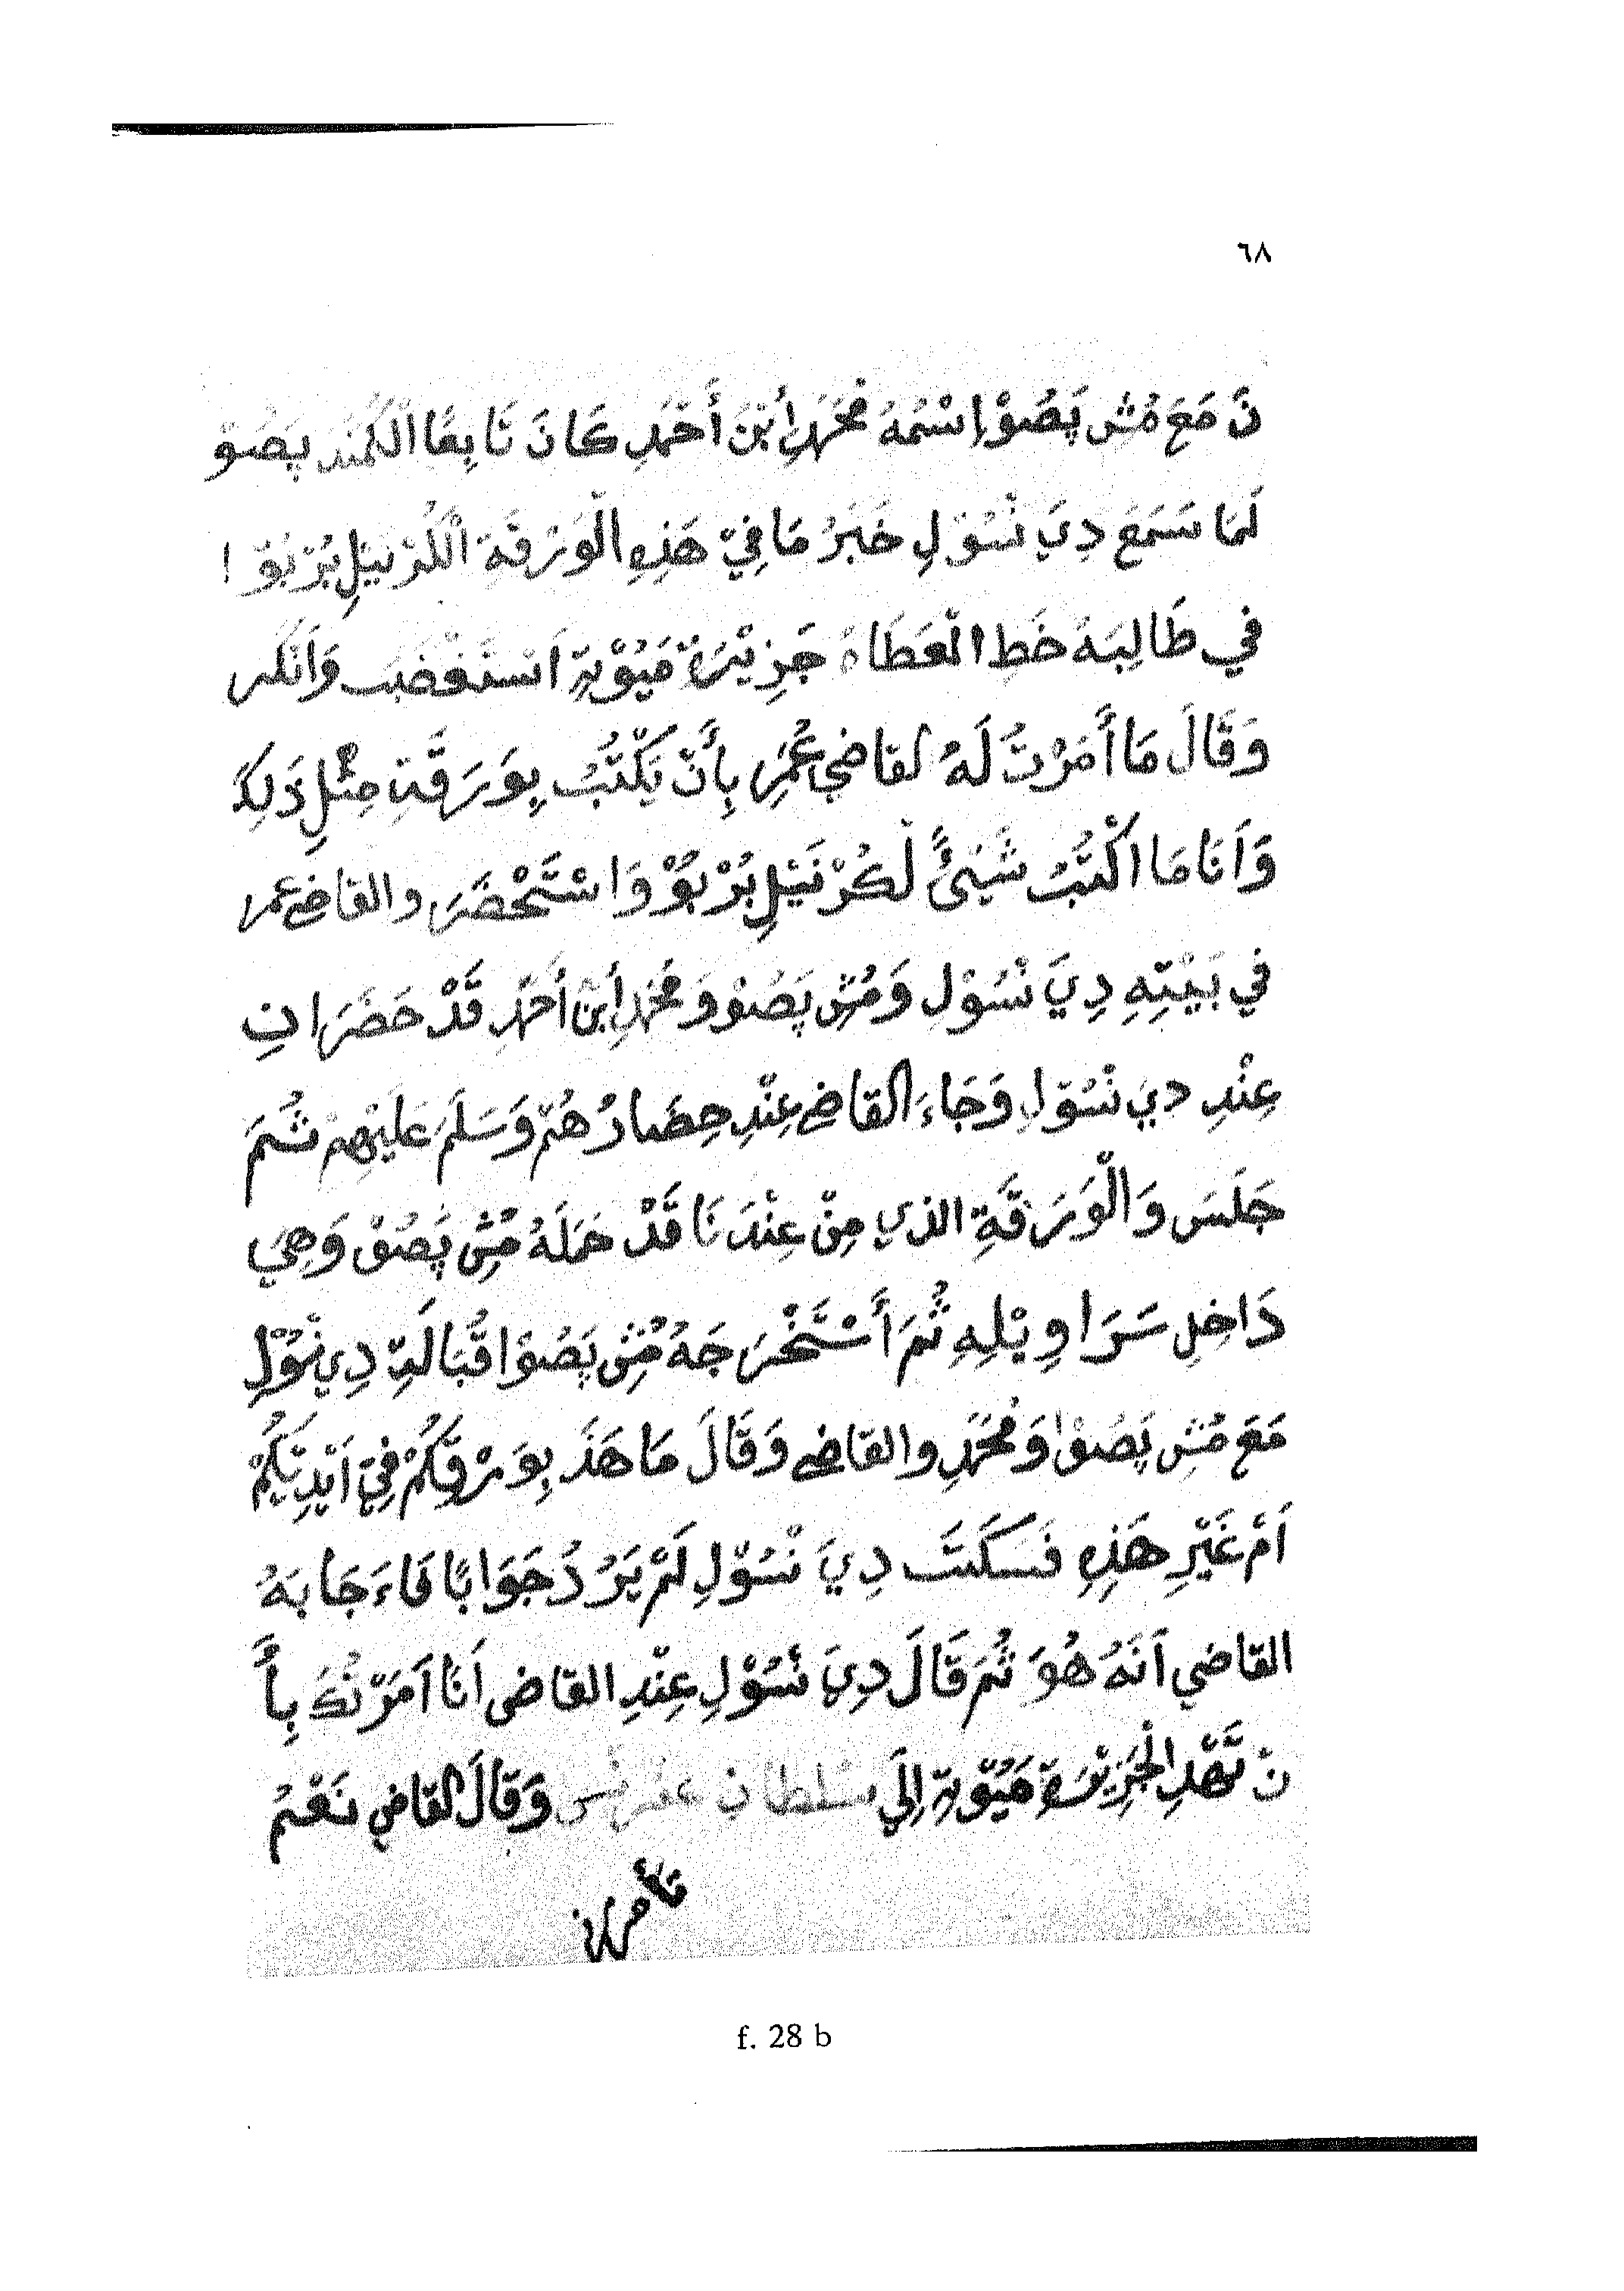 ٦٨
نَ مَعَ مُش پَصُوْ اِسْمُهُ مُحَمَّدِ ابْنُ أَحْمَدِ كَانَ تَابِعًا الْكُمَنْد پَصُوْ
لَمَا سَمَعَ دِيَ نْسُوْلِ خَبَرُ مَا فِيْ هَذِهِ الْوَرْقَةِ الْكُرْنَيْلِ بُرْبُوْ ا
في طَالِبَةُ خَطِ الْعَطَاهُ جَزِيْرَةْ مَيُوْةِ اَسْتَغْضَبَ وَاَنْكَر
وَقَالَ مَا أَمَرْتُ لَهُ لقاضي عُمَرِ بِأَنْ يَكْتُبُ بِوَرَقَةِ مِثْلِ ذَلِكَ
وَاَنَا مَا اكْتُبُ شَيْئٌ لَكُرْنَيْلِ بُرْبُوْ وَاسْتَحْضَرَ والقاضي عمر
في بَيْتِهِ دِيَ نْسُوْلِ وَمُشِ پَصُوْ وَمُحَمَّدِ ابْنُ أَحْمَدِ قَدْ حَضَرَانِ
عِنْدِ ديَ نْسُوْلِ وَجَاءَ القاضي عِنْدِ حِضَارُهُمْ وَسَلَمَ عَلَيْهِمْ ثُمَ
جَلَسَ وَالْوَرَقَةِ الذي مِنْ عِنْدَنَا قَدْ حَمَلَهُ مُشِ پَصُوْ وَهِيَ
دَاخِلِ سَرَاوِيْلِهِ ثُمَ أَسْتَخْرَجَهُ مُشِ پَصُوْا قُبَالَةِ دِيَ نْسُوْلِ
مَعَ مُشِ پَصُوْا وَمُحَمَّدِ والقاضي وَقَالَ مَا هَذَ بِوَرْقِكُمْ فِيْ اَيْدِيْكُمْ
اَمْ غَيْرِ هَذِهِ فَسَكَتَ دِيَ نْسُوْلِ لَمْ يَرُدُ جَوَابًا فَاءَجَابَهُ
القاضي اَنَهُ هُوَ ثُمَ قَالَ دِيَ نْسُوْلِ عِنْدِ القاضي اَنَا اَمَرْتُكَ بِأَ
نْ تَهْدِ الْجَزِيْرَةِ مَيُوْةِ اِلَي سُلْطَانِ عفرنْسِ وَقَالَ القاضي نَعَمْ
f. 28 b